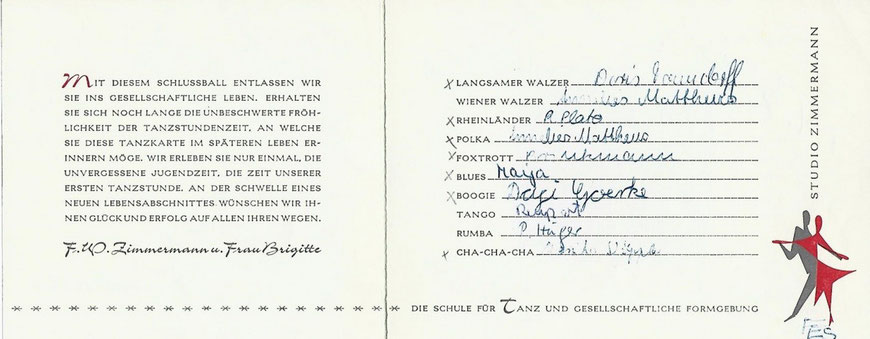 MIT DIESEM SCHLUSSBALL ENTLASSEN WIR
SIE INS GESELLSCHAFTLICHE LEBEN. ERHALTEN
SIE SICH NOCH LANGE DIE UNBESCHWERTE FRÖH-
LICHKEIT DER TANZSTUNDENZEIT, AN WELCHE
SIE DIESE TANZKARTE IM SPÄTEREN LEBEN ER-
INNERN MÖGE. WIR ERLEBEN SIE NUR EINMAL, DIE
UNVERGESSENE JUGENDZEIT, DIE ZEIT UNSERER
ERSTEN TANZSTUNDE. AN DER SCHWELLE EINES
NEUEN LEBENSABSCHNITTES WÜNSCHEN WIR IH-
NEN GLÜCK UND ERFOLG AUF ALLEN IHREN WEGEN.
F. W. Zimmermann u. Frau Brigitte
x LANGSAMER WALZER Doris
WIENER WALZER Matthews
x RHEINLÄNDER R. Plate
x POLKA Matthews
x FOXTROTT
x BLUES Maija
x BOOGIE Dagi Goerke
TANGO
RUMBA
x CHA-CHA-CHA
DIE SCHULE FÜR TANZ UND GESELLSCHAFTLICHE FORMGEBUNG
STUDIO ZIMMERMANN